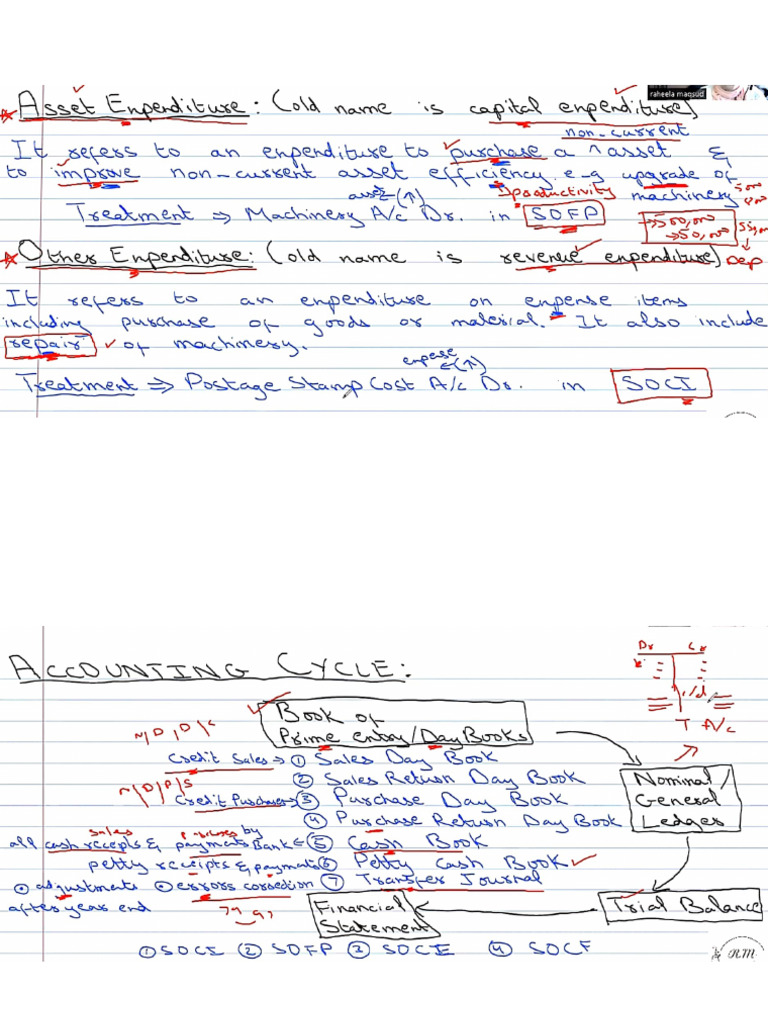 raheela maqsud
Asset Expenditure: (old name is capital expenditure)
non-current
It refers to an expenditure to purchase a ^ asset &
to improve non-current asset efficiency. e-g upgrade of
productivity machinery
asset (↑)
Treatment ⇒ Machinery A/c Dr. in SOFP
→500,000
→50,000
Other Expenditure: (old name is revenue expenditure)
Dep
It refers to an expenditure on expense items
including purchase of goods or material. It also include
repair of machinery.
expense (↑)
Treatment ⇒ Postage Stamp Cost A/c Dr. in SOCI
ACCOUNTING CYCLE:
Dr Cr
c/d
T A/c
Book of
Prime entry/Day Books
N/D/D/C
Credit Sales → ① Sales Day Book
② Sales Return Day Book
N/D/P/S
Credit Purchases → ③ Purchase Day Book
④ Purchase Return Day Book
Nominal/
General
Ledger
sales purchases by
all cash receipts & payments Bank ← ⑤ Cash Book
petty receipts & payments ⑥ Petty Cash Book
① adjustments ② errors correction ⑦ Transfer Journal
after year end
Financial
Statement
Trial Balance
① SOCI ② SOFP ③ SOCIE ④ SOCF
RM